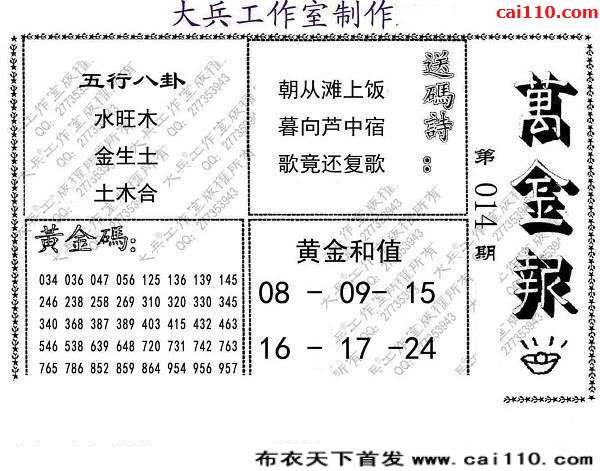 大兵工作室制作
cai110.com
萬金報
第014期
五行八卦
水旺木
金生土
土木合
送碼詩:
朝从滩上饭
暮向芦中宿
歌竟还复歌
黃金碼:
034 036 047 056 125 136 139 145
246 238 258 269 310 320 330 345
340 368 387 389 403 415 432 463
546 538 639 648 720 731 742 763
765 786 852 858 864 954 956 957
黄金和值
08 - 09- 15
16 - 17 -24
大兵工作室版權所有
QQ: 277353943
布衣天下首发 www.cai110.com